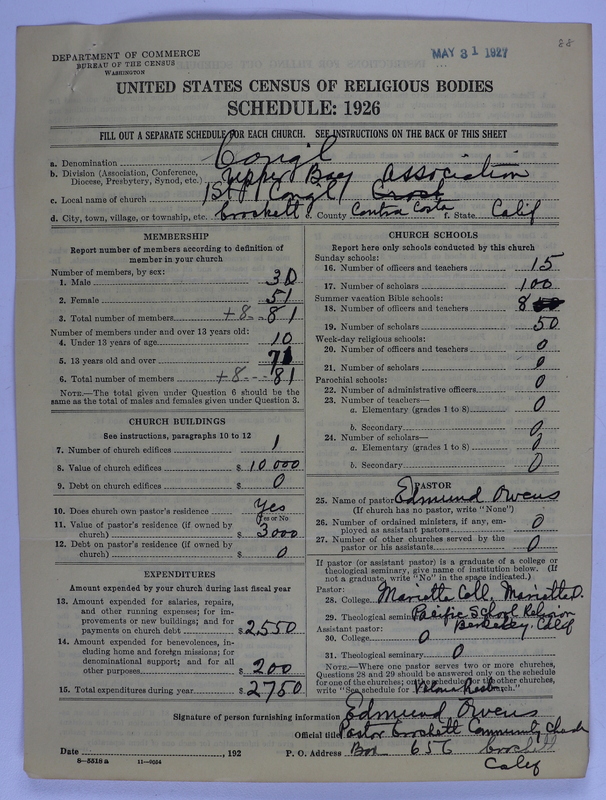 88
DEPARTMENT OF COMMERCE
BUREAU OF THE CENSUS
WASHINGTON
MAY 31 1927
UNITED STATES CENSUS OF RELIGIOUS BODIES
SCHEDULE: 1926
FILL OUT A SEPARATE SCHEDULE FOR EACH CHURCH. SEE INSTRUCTIONS ON THE BACK OF THIS SHEET
a. Denomination Congil
b. Division (Association, Conference, Diocese, Presbytery, Synod, etc.) Upper Bay Association
c. Local name of church 1st Congil Crock
d. City, town, village, or township, etc. Crockett e. County Contra Costa f. State Calif
MEMBERSHIP
Report number of members according to definition of member in your church
Number of members, by sex:
1. Male 30
2. Female 51
3. Total number of members +8 -- 81
Number of members under and over 13 years old:
4. Under 13 years of age 10
5. 13 years old and over 71
6. Total number of members +8 --- 81
NOTE.—The total given under Question 6 should be the same as the total of males and females given under Question 3.
CHURCH BUILDINGS
See instructions, paragraphs 10 to 12
7. Number of church edifices 1
8. Value of church edifices $ 10 000
9. Debt on church edifices $ 0
10. Does church own pastor's residence Yes
(Yes or No)
11. Value of pastor's residence (if owned by church) $ 3000
12. Debt on pastor's residence (if owned by church) $ 0
EXPENDITURES
Amount expended by your church during last fiscal year
13. Amount expended for salaries, repairs, and other running expenses; for improvements or new buildings; and for payments on church debt $ 2,550
14. Amount expended for benevolences, including home and foreign missions; for denominational support; and for all other purposes $ 200
15. Total expenditures during year $ 2750
CHURCH SCHOOLS
Report here only schools conducted by this church
Sunday schools:
16. Number of officers and teachers 15
17. Number of scholars 100
Summer vacation Bible schools:
18. Number of officers and teachers 8
19. Number of scholars 50
Week-day religious schools:
20. Number of officers and teachers 0
21. Number of scholars 0
Parochial schools:
22. Number of administrative officers 0
23. Number of teachers—
a. Elementary (grades 1 to 8) 0
b. Secondary 0
24. Number of scholars—
a. Elementary (grades 1 to 8) 0
b. Secondary 0
PASTOR
25. Name of pastor Edmund Owens
(If church has no pastor, write "None")
26. Number of ordained ministers, if any, employed as assistant pastors 0
27. Number of other churches served by the pastor or his assistants 0
If pastor (or assistant pastor) is a graduate of a college or theological seminary, give name of institution below. (If not a graduate, write "No" in the space indicated.)
Pastor:
28. College Marietta Coll, Marietta O.
29. Theological seminary Pacific School Religion Berkeley, Calif
Assistant pastor:
30. College 0
31. Theological seminary 0
NOTE.—Where one pastor serves two or more churches, Questions 28 and 29 should be answered only on the schedule for one of the churches; on the schedules for the other churches, write "See schedule for church."
Signature of person furnishing information Edmund Owens
Official title Pastor Crockett Community Church
Date , 192 P. O. Address Box 656 Crockett
Calif
8—5518 a 11—9024